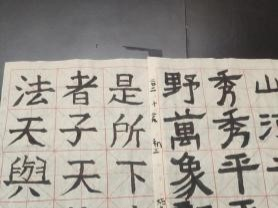 法者是
天子所
與天下
野秀山
萬秀河
象平